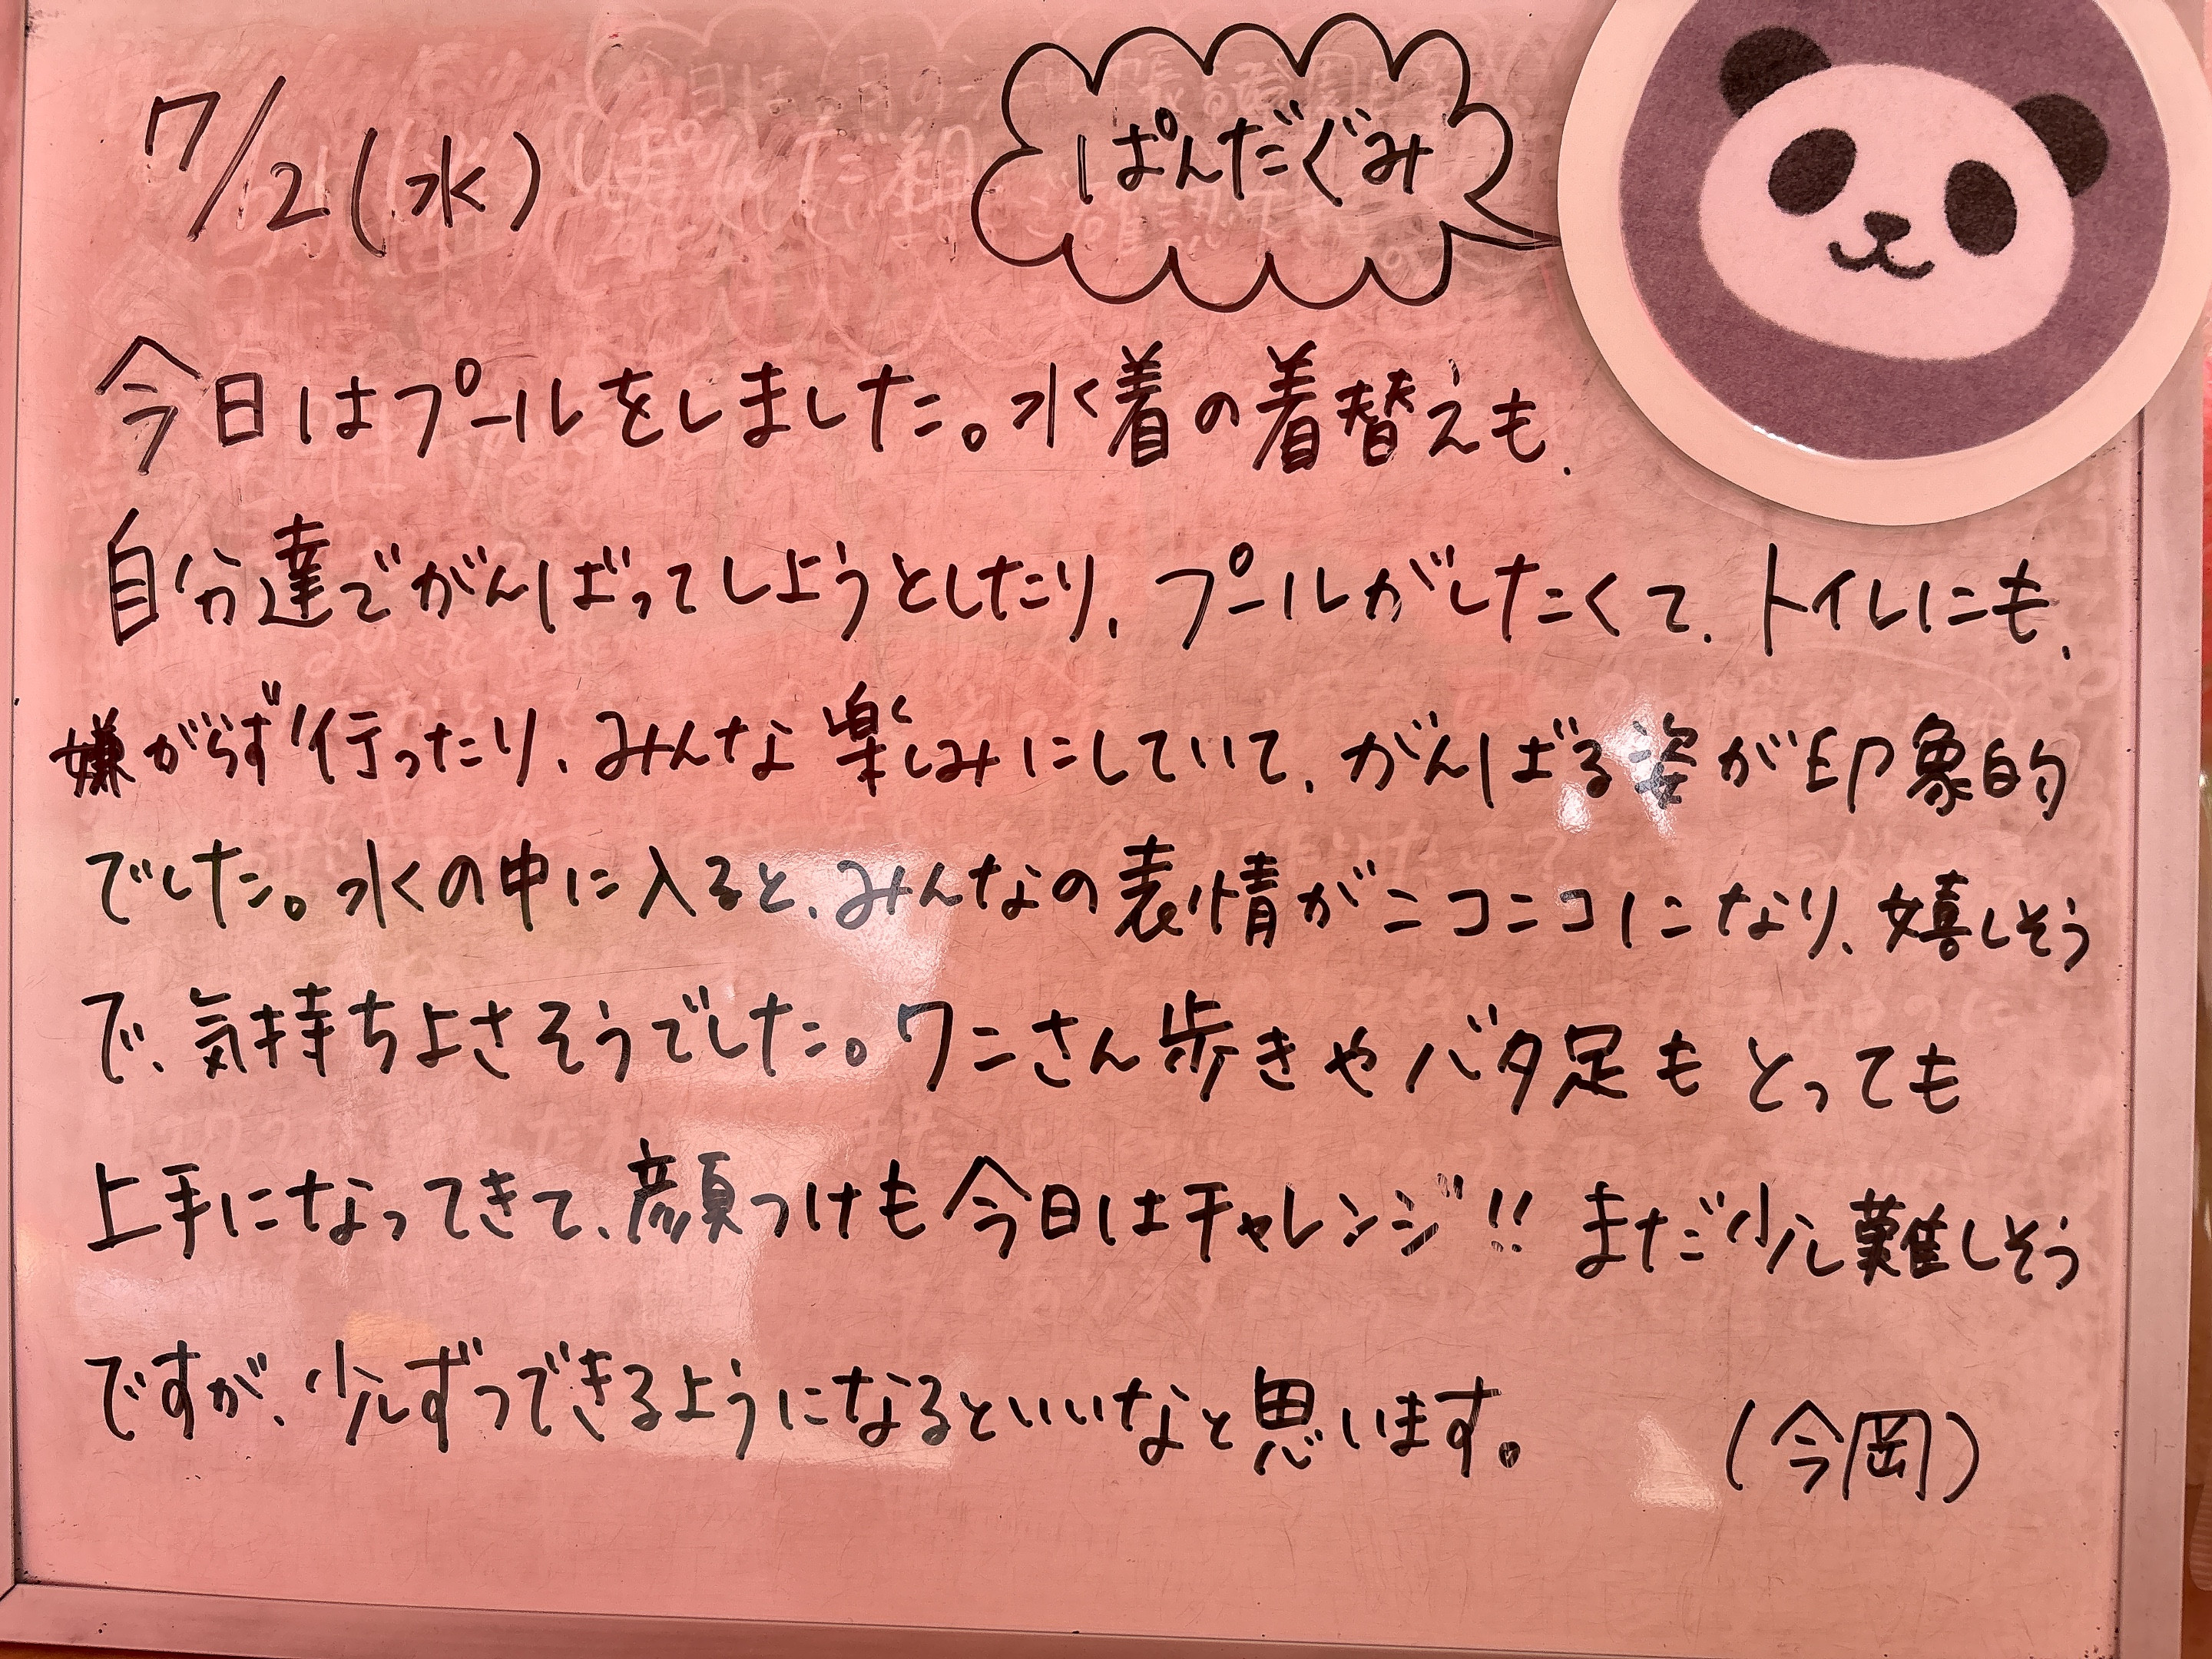 7/2(水)
ぱんだぐみ
今日はプールをしました。水着の着替えも、
自分達でがんばってしようとしたり、プールがしたくて、トイレにも、
嫌がらず行ったり、みんな楽しみにしていて、がんばる姿が印象的
でした。水の中に入ると、みんなの表情がニコニコになり、嬉しそう
で、気持ちよさそうでした。ワニさん歩きやバタ足もとっても
上手になってきて、顔つけも今日はチャレンジ!!まだ少し難しそう
ですが、少しずつできるようになるといいなと思います。
(今岡)